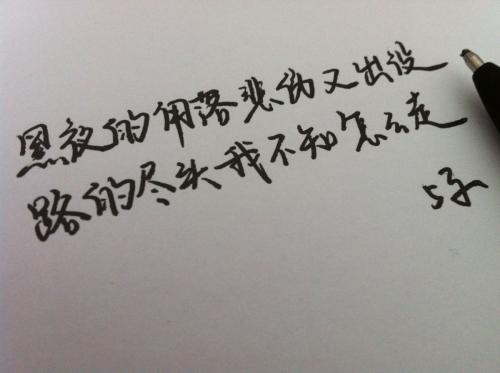 黑夜的角落悲伤又出没
路的尽头我不知怎么走
5子